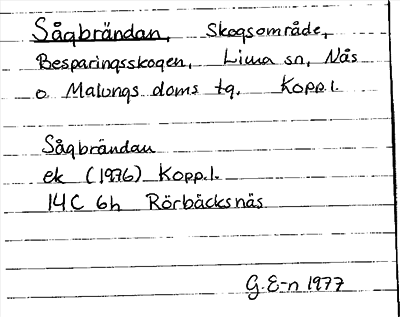 Sågbrändan, Skogsområde,
Besparingsskogen, Lima sn, Nås
o Malungs doms tg, Kopp.l.
Sågbrändan
ek (1976) Kopp.l.
14C 6h Rörbäcksnäs
G.E-n 1977